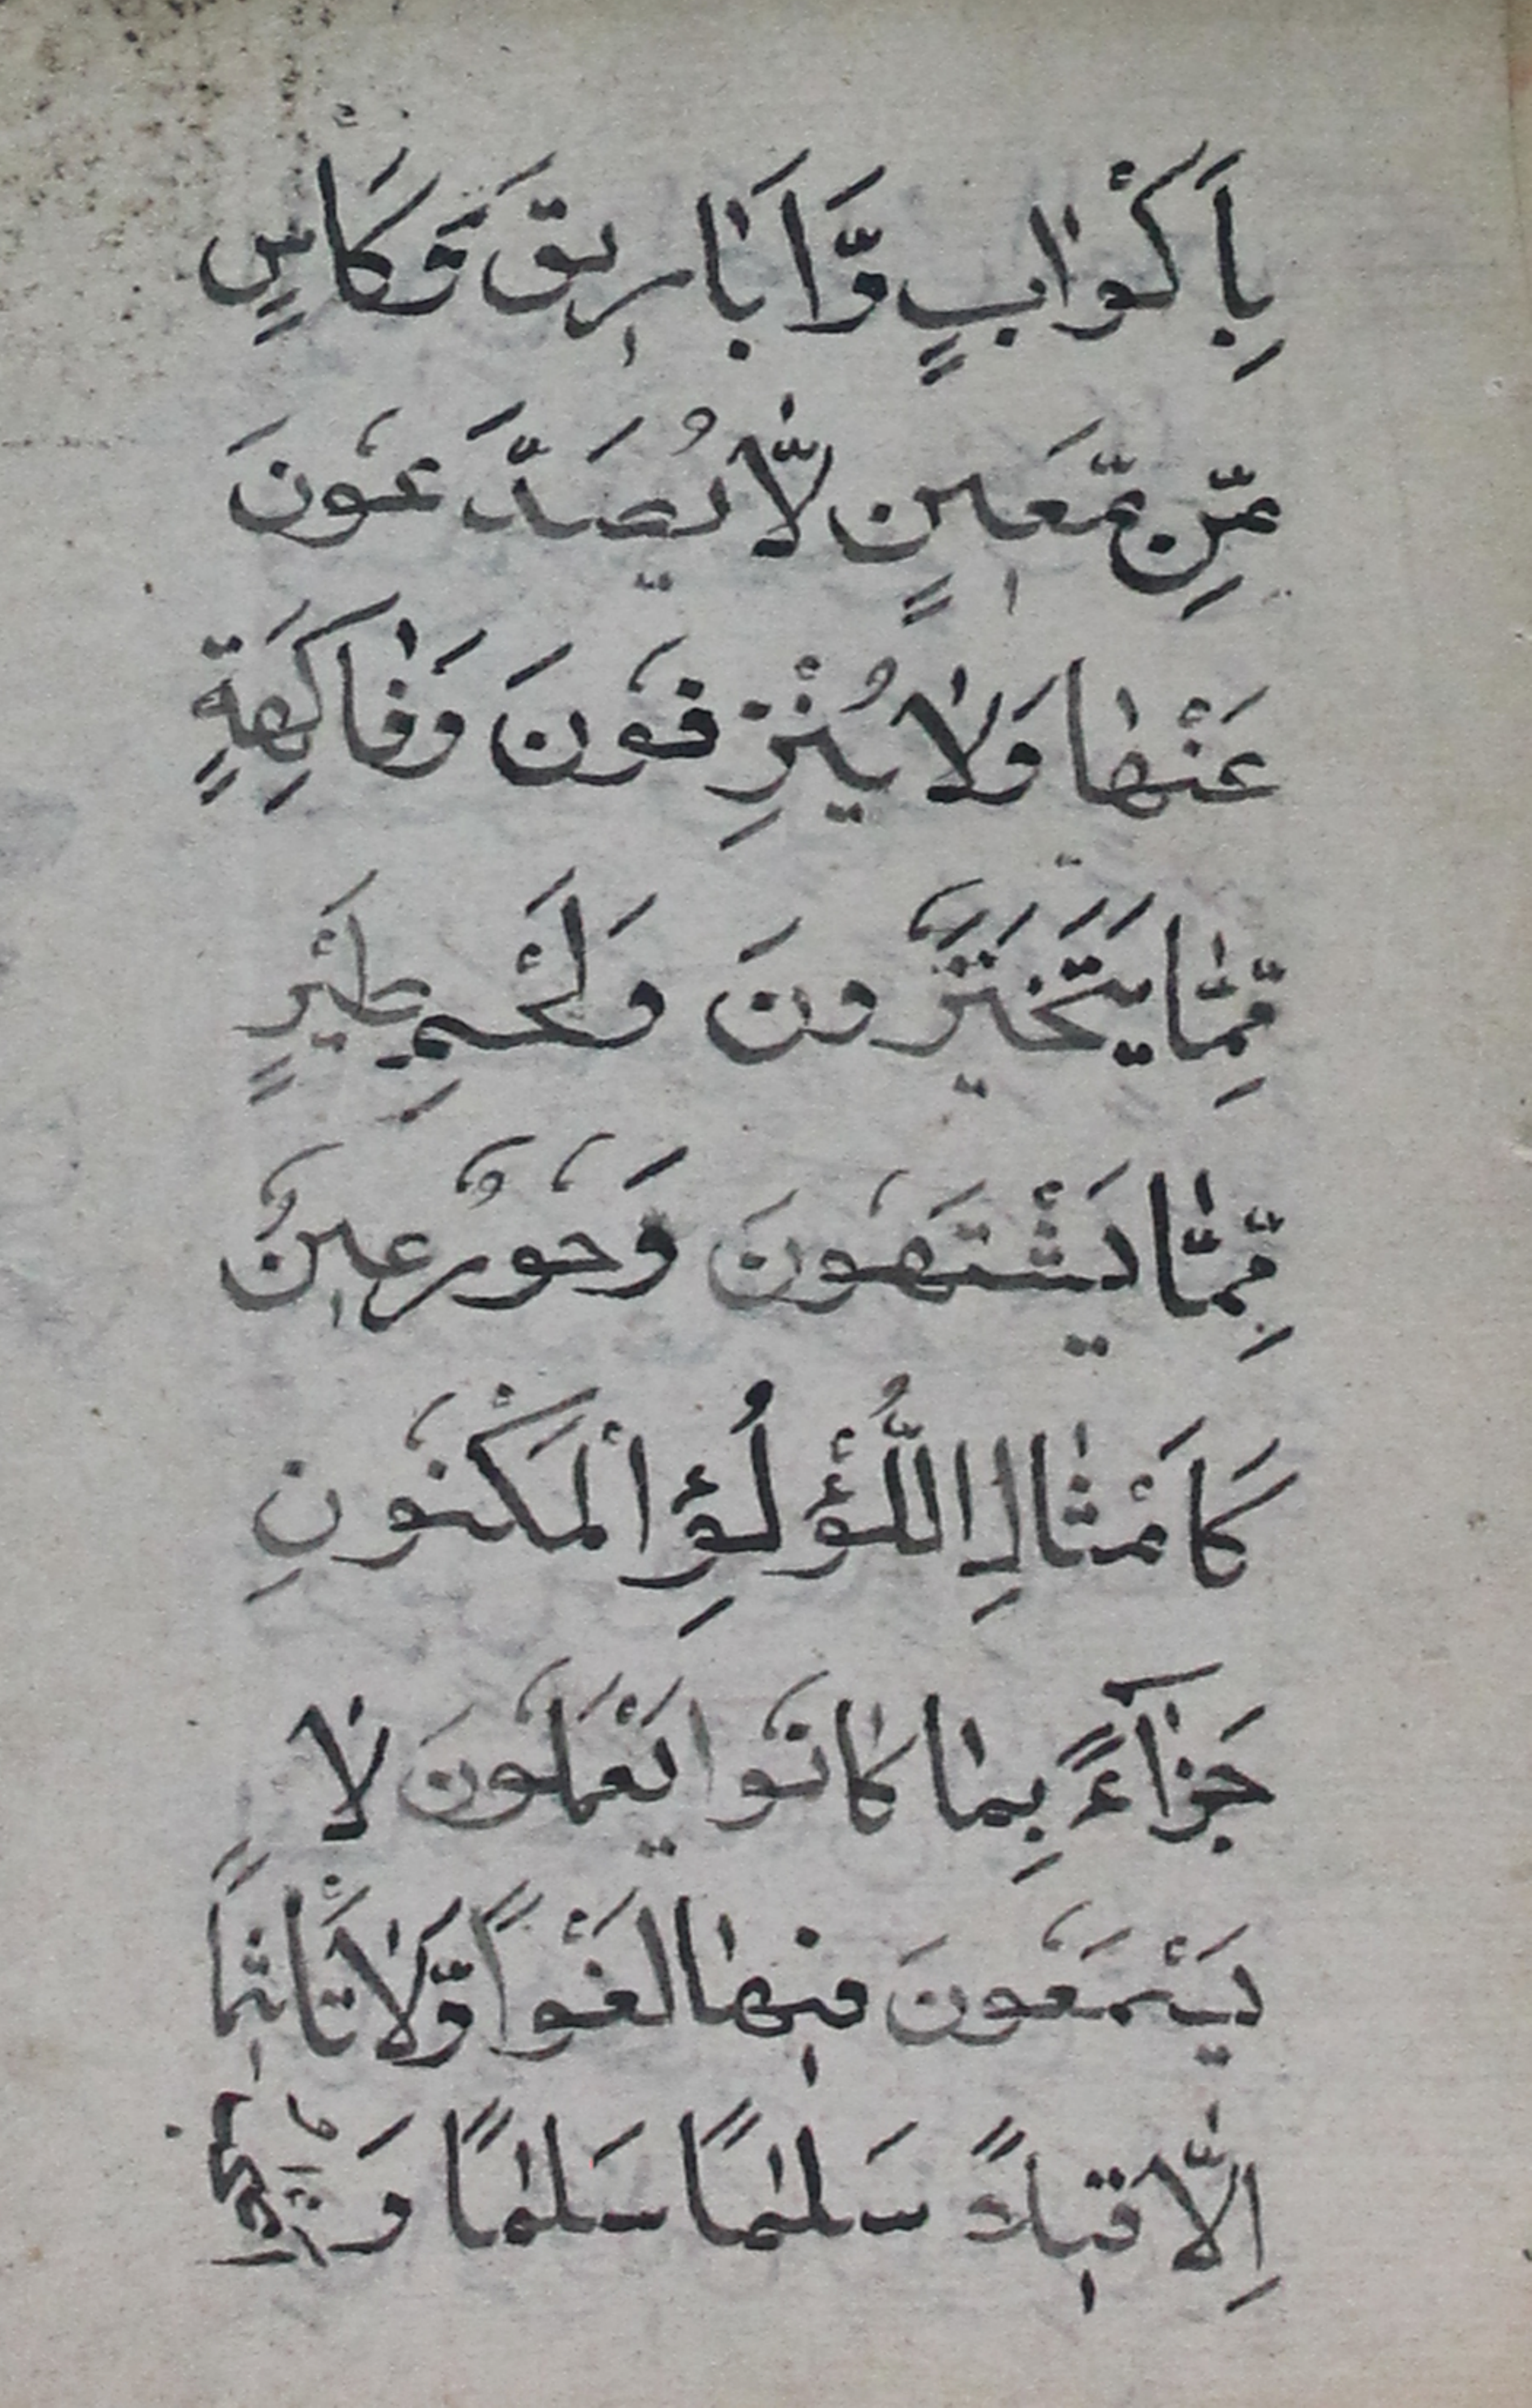 بِاَكْوٰابٍ وَّاَبٰارِيقَ وَكَاْسٍ
مِّن مَّعٖينٍ لّٰا يُصَدَّعُونَ
عَنْهٰا وَلٰا يُنْزِفُونَ وَفٰاكِهَةٍ
مِّمّٰا يَتَخَيَّرُونَ وَلَحْمِ طَيْرٍ
مِّمّٰا يَشْتَهُونَ وَحُورٌ عٖينٌ
كَاَمْثٰالِ اللُّؤْلُؤِ اْلمَكْنُونِ
جَزٰآءً بِمٰا كٰانُوا يَعْمَلُونَ لٰا
يَسْمَعُونَ فٖيهٰا لَغْواً وَّلٰا تَاْثٖيماً
اِلّٰا قٖيلاً سَلٰمًا سَلٰمًا وَ